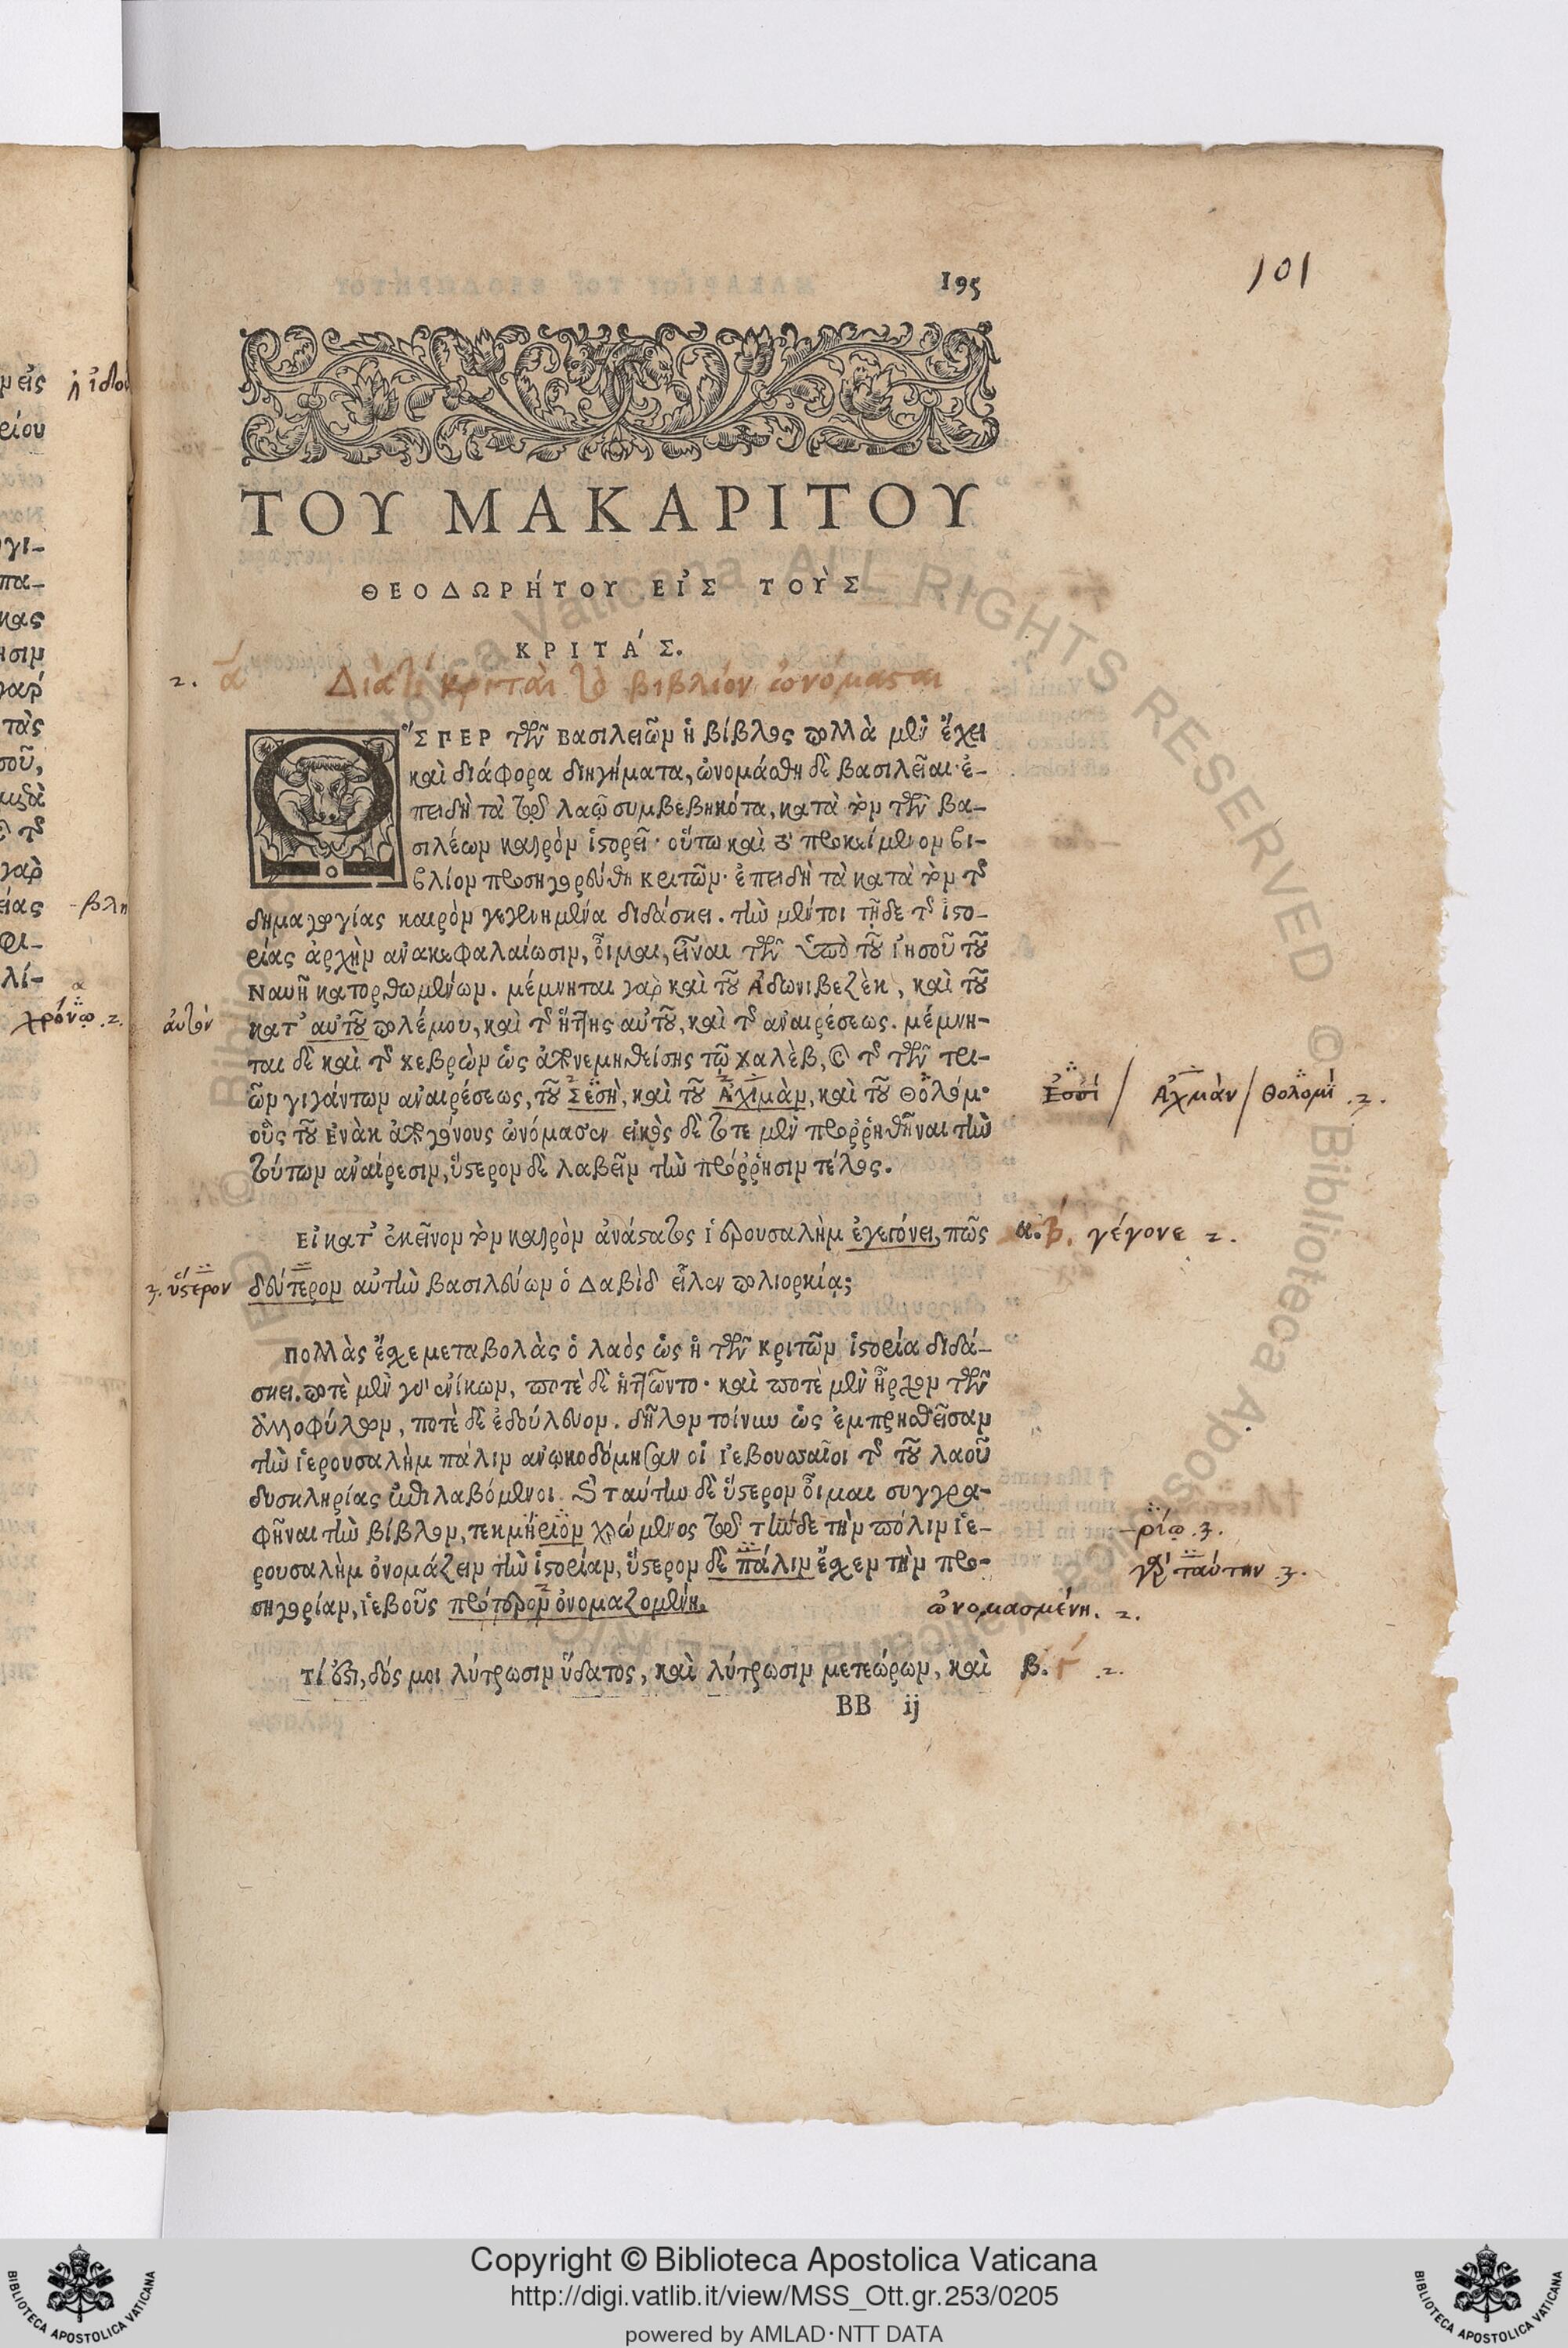 195
101
ΤΟΥ ΜΑΚΑΡΙΤΟΥ
ΘΕΟΔΩΡΉΤΟΥ ΕἸΣ ΤΟῪΣ
ΚΡΙΤΆΣ.
2. ά Διὰτί κριταὶ τὸ βιβλίον ὠνόμασται
ὭΣΠΕΡ τῶν βασιλειῶν ἡ βίβλος πολλὰ μὲν ἔχει
καὶ διάφορα διηγήματα, ὠνομάσθη δὲ βασιλεῖαι· ἐ-
πειδὴ τὰ τῷ λαῷ συμβεβηκότα, κατὰ τὸν τῶν βα-
σιλέων καιρὸν ἱστορεῖ· οὕτω καὶ τὸ προκείμενον βι-
βλίον προσηγορεύθη κριτῶν· ἐπειδὴ τὰ κατὰ τὸν τῆς
δημαγωγίας καιρὸν γεγενημένα διδάσκει. τὴν μέντοι τῆδε τῆς ἱστο-
ρίας ἀρχὴν ἀνακεφαλαίωσιν, οἶμαι, εἶναι τῶν ὑπὸ τοῦ ἰησοῦ τοῦ
Ναυῆ κατορθωμένων. μέμνηται γαρ καὶ τοῦ Ἀδωνιβεζὲκ, καὶ τοῦ
αὐτόν κατ' αὐτοῦ πολέμου, καὶ τῆς ἥττης αὐτοῦ, καὶ τῆς ἀναιρέσεως. μέμνη-
ται δὲ καὶ τῆς χεβρὼν ὡς ἀπονεμηθείσης τῷ χαλὲβ, καὶ τῆς τῶν τρι-
ῶν γιγάντων ἀναιρέσεως, τοῦ Σεσὴ, καὶ τοῦ Ἀχιμὰν, καὶ τοῦ Θολέμ· Ἐσσί / Ἀχμὰν / Θολομί .3.
οὓς τοῦ ἐνὰκ ἀπογόνους ὠνόμασεν εἰκὸς δὲ τότε μὲν προῤῥηθῆναι τὴν
τούτων ἀναίρεσιν, ὕστερον δὲ λαβεῖν τὴν πρόῤῥησιν τέλος.
Εἰ κατ' ἐκεῖνον τὸν καιρὸν ἀνάστατος ἱερουσαλὴμ ἐγεγόνει, πῶς α. β. γέγονε 2.
3. ὕστερον δεύτερον αὐτὴν βασιλεύων ὁ Δαβὶδ εἷλεν πολιορκίᾳ;
Πολλὰς ἔσχε μεταβολὰς ὁ λαὸς ὡς ἡ τῶν κριτῶν ἱστορία διδά-
σκει. ποτὲ μὲν γὰρ ἐνίκων, ποτὲ δὲ ἡττῶντο· καὶ ποτὲ μὲν ἦρχον τῶν
ἀλλοφύλων, ποτὲ δὲ ἐδούλευον. δῆλον τοίνυν ὡς ἐμπρησθεῖσαν
τὴν ἱερουσαλὴμ πάλιν ἀνῳκοδόμησαν οἱ ἰεβουσαῖοι τῆς τοῦ λαοῦ
δυσκληρίας ἐπιλαβόμενοι. ταύτην δὲ ὕστερον οἶμαι συγγρα-
φῆναι τὴν βίβλον, τεκμήριον χρώμενος τῷ τήνδε τὴν πόλιν ἱε- -ρίῳ .3.
ρουσαλὴμ ὀνομάζειν τὴν ἱστορίαν, ὕστερον δὲ πάλιν ἔσχεν τὴν προ- γὰρ ταύτην .3.
σηγορίαν, ἰεβοῦς πρότερον ὀνομαζομένη. ὠνομασμένη. 2.
Τί ἐστι, δός μοι λύτρωσιν ὕδατος, καὶ λύτρωσιν μετεώρων, καὶ β. γ .2.
BB ij
μεις
ρίου
χρόνῳ .2.
Copyright © Biblioteca Apostolica Vaticana
http://digi.vatlib.it/view/MSS_Ott.gr.253/0205
powered by AMLAD·NTT DATA
BIBLIOTECA APOSTOLICA VATICANA
BIBLIOTECA APOSTOLICA VATICANA